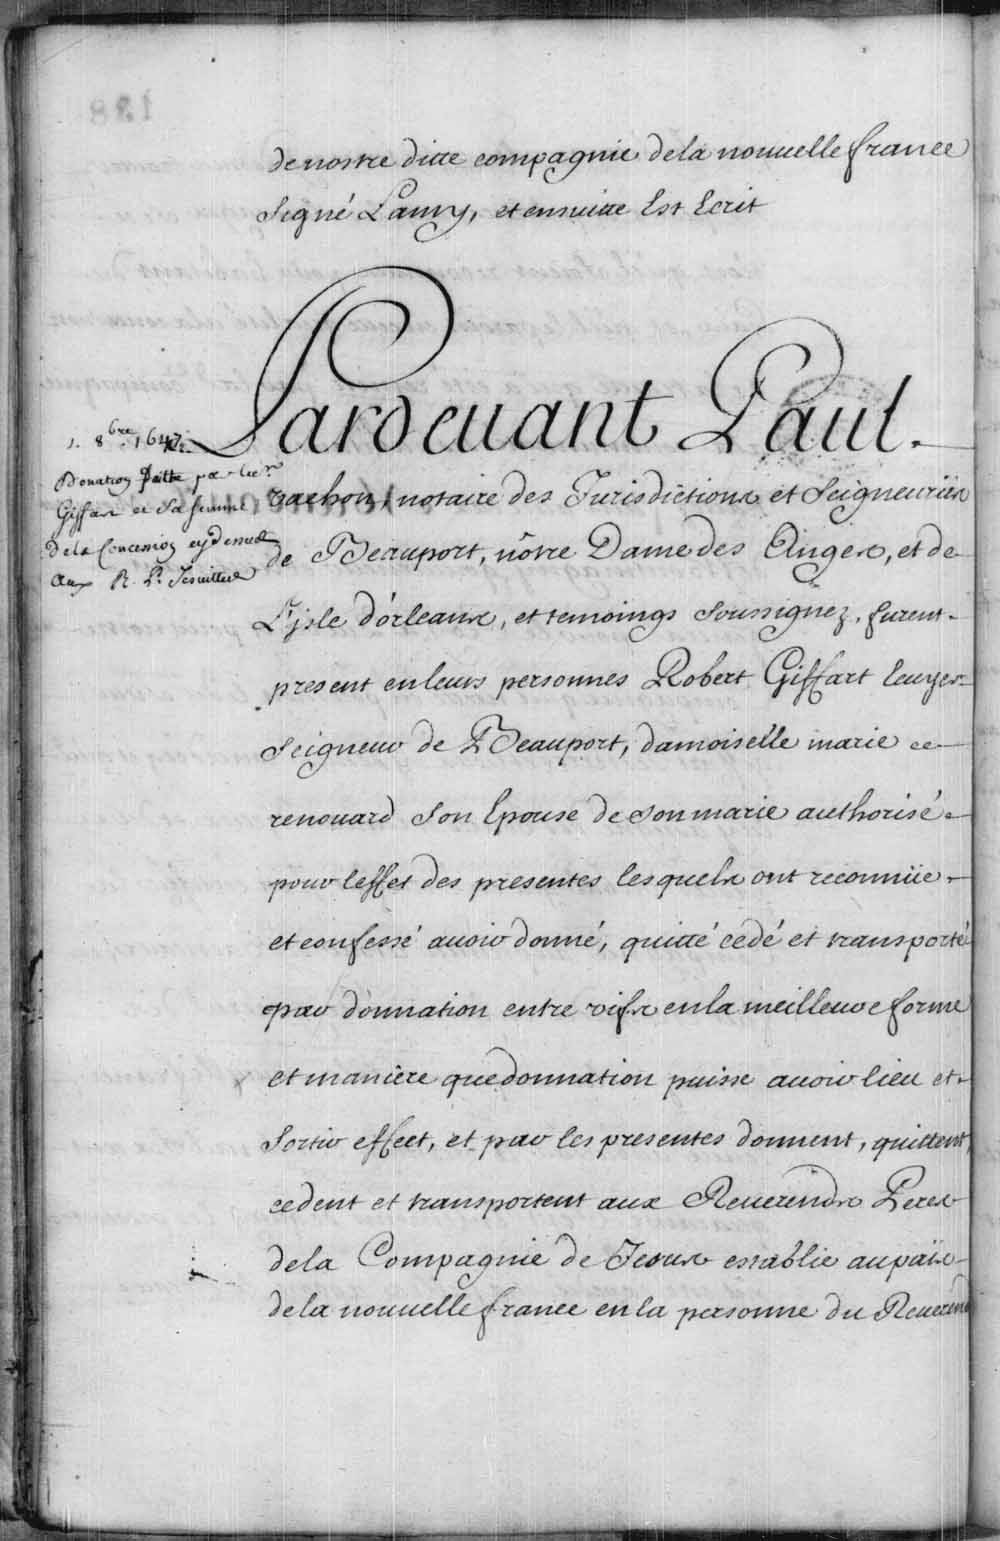 de nostre ditte compagnie de la nouuelle france
Signé Lamy, et ensuitte Est Ecrit
Pardeuant Paul
1. 8bre 1647.
Donation faitte par le Sr
Giffart et Sa femme
De la Concession cydessus
Aux R. P. Jesuittes
vachon, notaire des Jurisdictions et Seigneuries
de Beauport, nôtre Dame des Anges, et de
L'jsle d'orleans, et temoings Soussignez, furent
present en leurs personnes Robert Giffart Ecuyer
Seigneur de Beauport, damoiselle marie
renouard Son Epouse de Son marie authorisé
pour l'effet des presentes lesquels ont reconnüe
et confessé auoir donné, quitté cedé et transporté
par donnation entre vifs en la meilleure forme
et maniere que donnation puisse auoir lieu et
Sortir effect, et par les presentes donnent, quittent,
cedent et transportent aux Reuerends Peres
de la Compagnie de Jesus establie au païs
de la nouuelle france en la personne du Reuerend